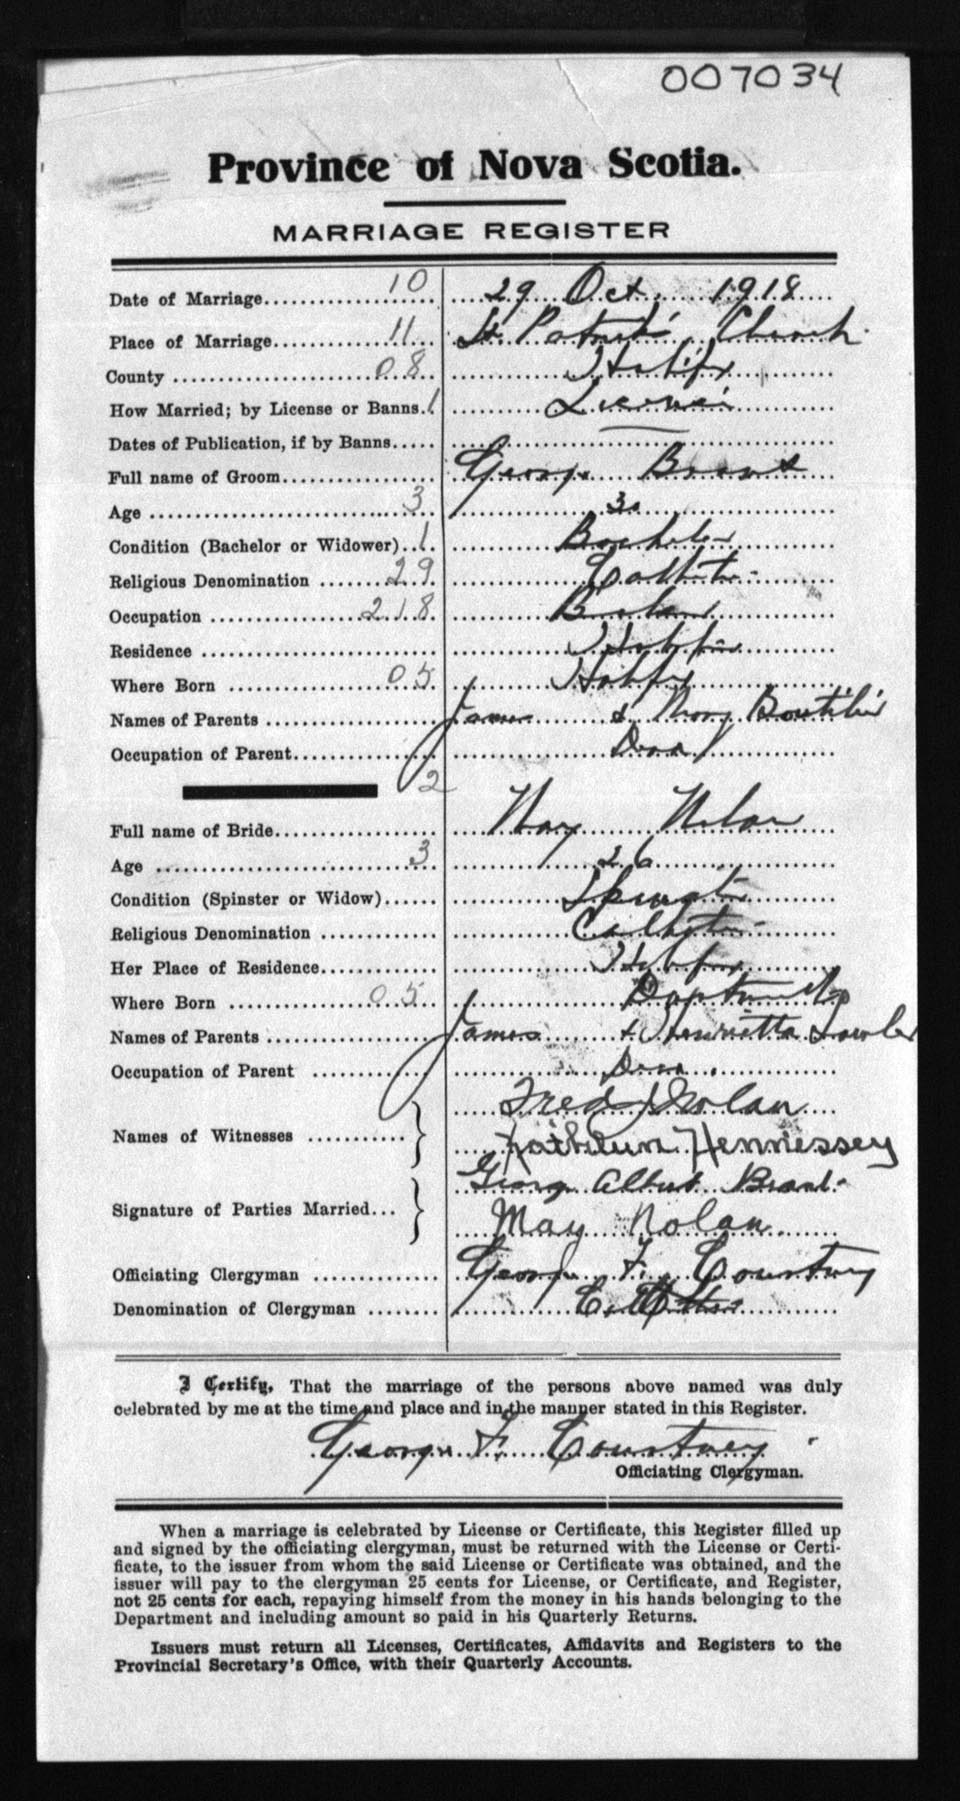 007034
Province of Nova Scotia.
MARRIAGE REGISTER
Date of Marriage 10 29 Oct. 1918
Place of Marriage 11 St. Patrick's Church
County 08 Halifax
How Married; by License or Banns 1 License
Dates of Publication, if by Banns
Full name of Groom George
Age 3 30
Condition (Bachelor or Widower) 1 Bachelor
Religious Denomination 29 Catholic
Occupation 218
Residence Halifax
Where Born 05 Halifax
Names of Parents James & Mary Boutilier
Occupation of Parent
2
Full name of Bride May Nolan
Age 3 26
Condition (Spinster or Widow) Spinster
Religious Denomination Catholic
Her Place of Residence Halifax
Where Born 05 Dartmouth
Names of Parents James & Henrietta Lawlor
Occupation of Parent
Names of Witnesses Fred J Nolan
Kathleen Hennessey
Signature of Parties Married George Albert
May Nolan
Officiating Clergyman George F. Courtney
Denomination of Clergyman Catholic
I Certify, That the marriage of the persons above named was duly
celebrated by me at the time and place and in the manner stated in this Register.
George F. Courtney
Officiating Clergyman.
When a marriage is celebrated by License or Certificate, this Register filled up
and signed by the officiating clergyman, must be returned with the License or Certi-
ficate, to the issuer from whom the said License or Certificate was obtained, and the
issuer will pay to the clergyman 25 cents for License, or Certificate, and Register,
not 25 cents for each, repaying himself from the money in his hands belonging to the
Department and including amount so paid in his Quarterly Returns.
Issuers must return all Licenses, Certificates, Affidavits and Registers to the
Provincial Secretary's Office, with their Quarterly Accounts.